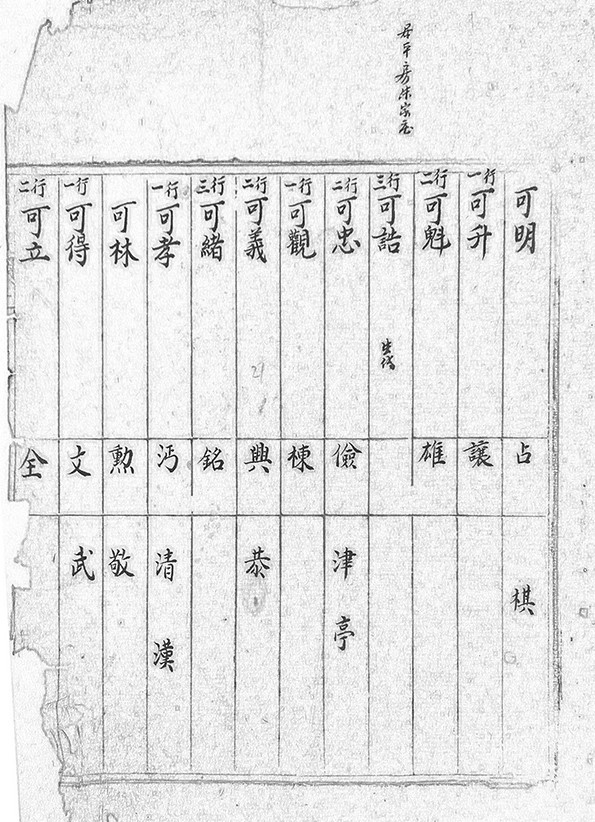 居平房朱家屯
可明 占 棋
一行 可升 讓
二行 可魁 雄
三行 可誥 失傳
二行 可忠 儉 津 亭
一行 可觀 棟
二行 可義 興 恭
三行 可緒 銘
一行 可孝 沔 清 漢
可林 勲 敬
一行 可得 文 武
二行 可立 全